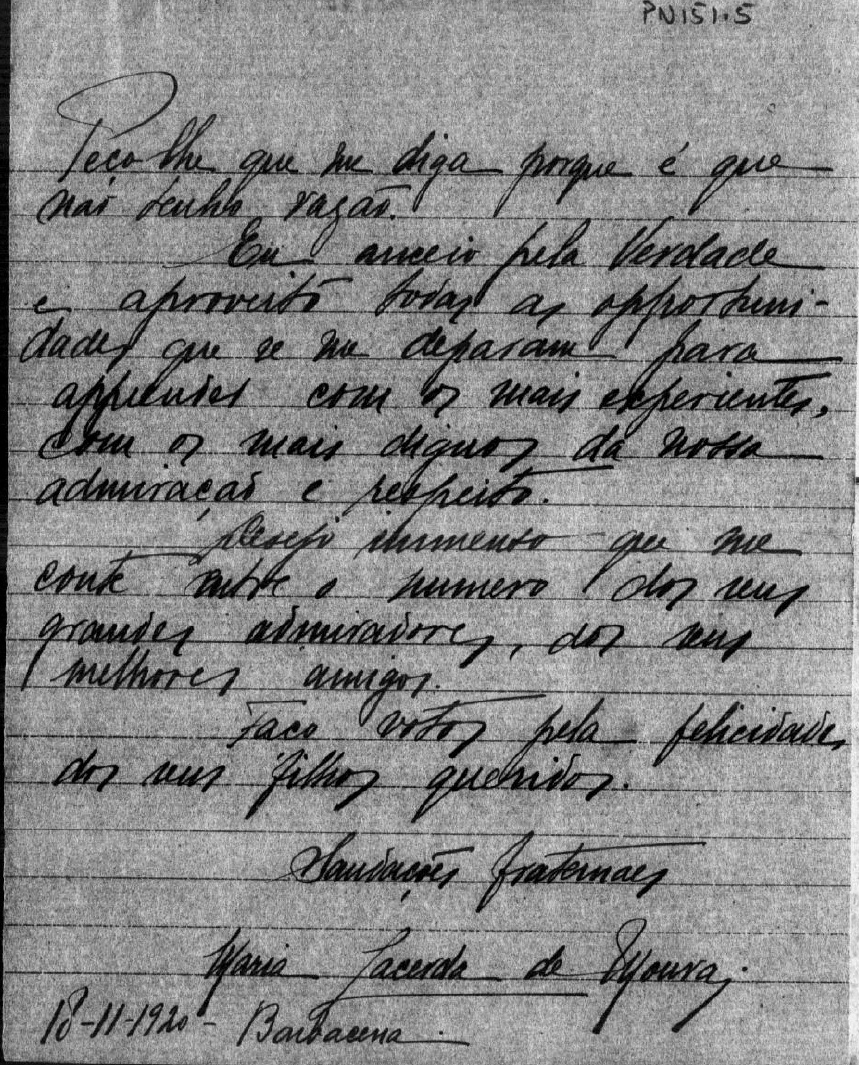 PN151.5
Peço lhe que me diga porque é que
não tenho razão.
Eu anceio pela Verdade
e aproveito todas as opportuni-
dades que se me deparam para
apprender com os mais experientes,
com os mais dignos da nossa
admiração e respeito.
Desejo immenso que me
conte entre o numero dos seus
grandes admiradores, dos seus
melhores amigos.
Faço votos pela felicidades
dos seus filhos queridos.
Saudações fraternaes
Maria Lacerda de Moura.
18-11-1920 - Barbacena.